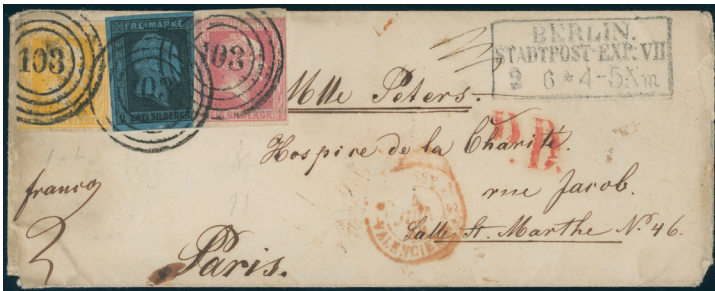 103
FREIMARKE
103
2 ZWEI SILBERGR.
103
SILBERGR
BERLIN.
STADTPOST-EXP: VII
6 * 4-5 Nm
Mlle Peters.
P.D.
Hospice de la Charité.
rue Jacob.
Salle St. Marthe No. 46.
franco
Paris.
VALENCIENNES